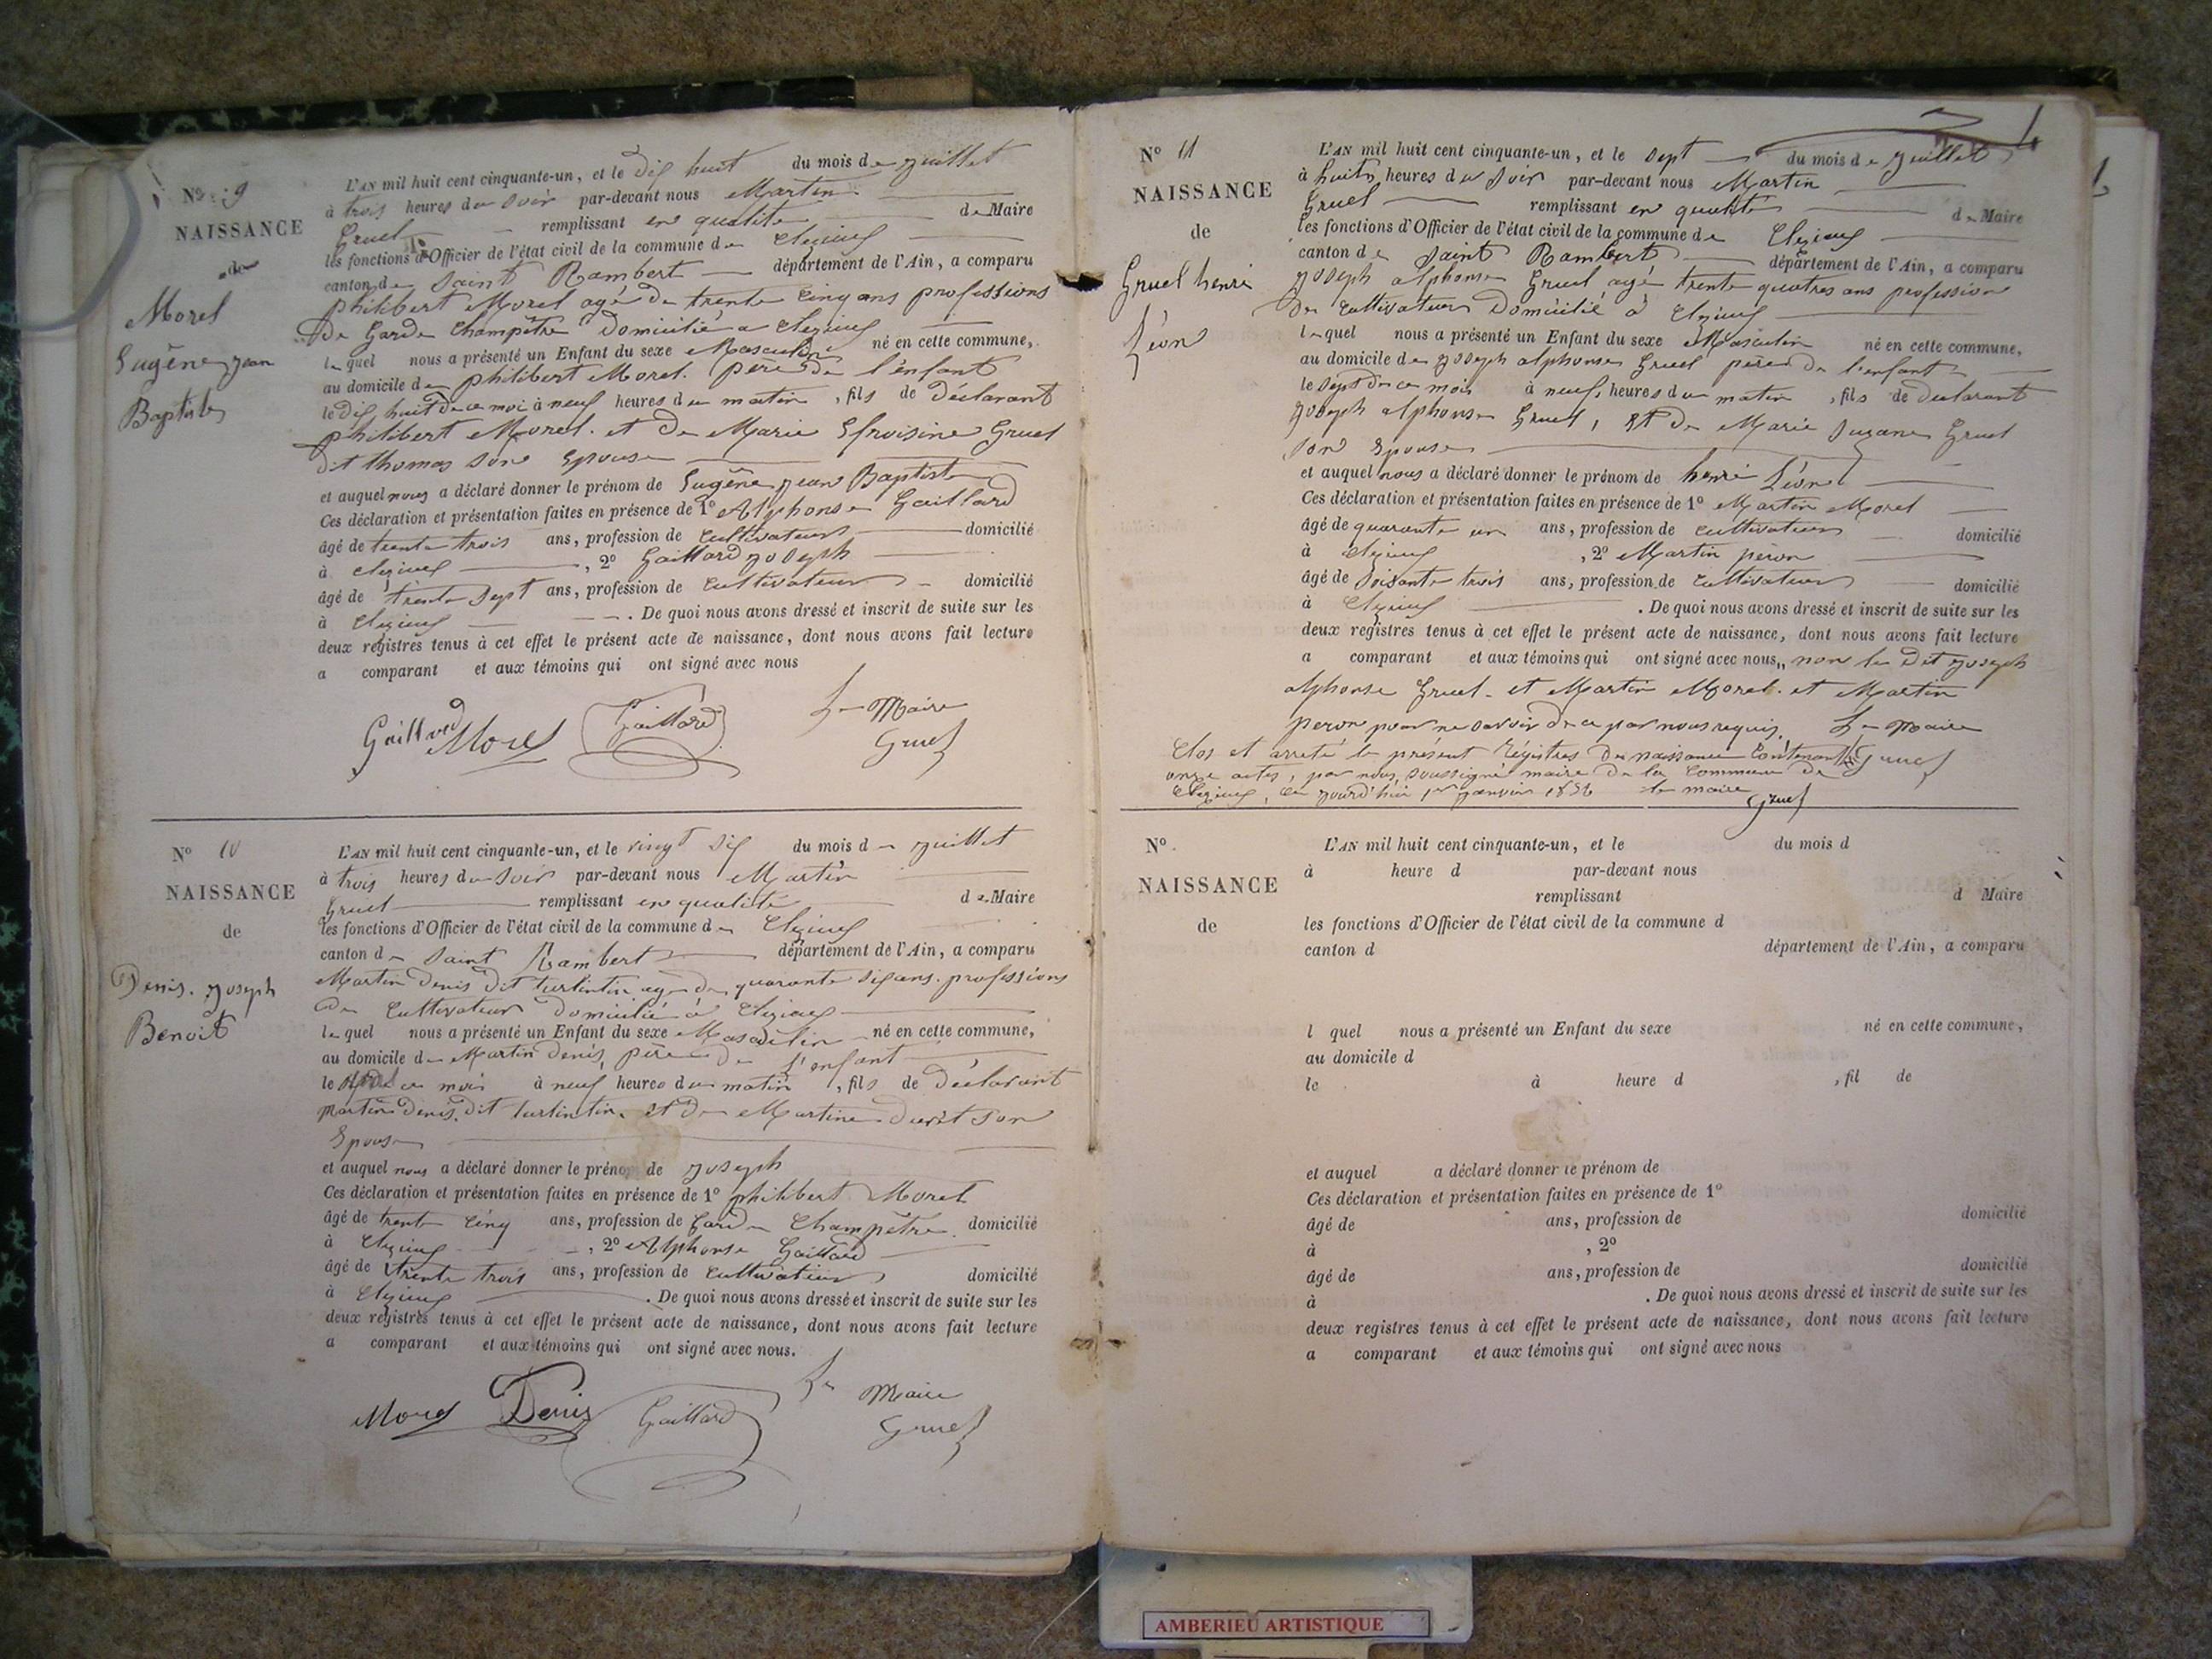 N° 9
NAISSANCE
de
Morel
Eugène jean
Baptiste
L'AN mil huit cent cinquante-un, et le dix huit du mois de juillet
à trois heures du soir par-devant nous Martin
Gruel remplissant en qualité de Maire
les fonctions d'Officier de l'état civil de la commune de Cleyzieu
canton de Saint Rambert département de l'Ain, a comparu
philibert Morel agé de trente cinq ans professions
de Garde Champêtre Domicilié a Cleyzieu
le quel nous a présenté un Enfant du sexe Masculin né en cette commune,
au domicile de philibert Morel. père de l'enfant
le dix huit de ce moi à neuf heures du matin, fils de déclarant
philibert Morel. et de Marie Efroisine Gruel
dit thomas son Epouse
et auquel nous a déclaré donner le prénom de Eugène jean Baptiste
Ces déclaration et présentation faites en présence de 1° Alphonse Gaillard
âgé de trente trois ans, profession de Cultivateur domicilié
à Cleyzieu, 2° Gaillard joseph
âgé de trente sept ans, profession de Cultivateur domicilié
à Cleyzieu. De quoi nous avons dressé et inscrit de suite sur les
deux registres tenus à cet effet le présent acte de naissance, dont nous avons fait lecture
a comparant et aux témoins qui ont signé avec nous
Le Maire
Gaillard Morel Gaillard Gruel
N° 10
NAISSANCE
de
Denis. joseph
Benoit
L'AN mil huit cent cinquante-un, et le vingt six du mois de juillet
à trois heures du soir par-devant nous Martin
Gruel remplissant en qualité de Maire
les fonctions d'Officier de l'état civil de la commune de Cleyzieu
canton de Saint Rambert département de l'Ain, a comparu
Martin denis dit turlintin agé de quarante six ans. professions
de Cultivateur domicilié à Cleyzieu
le quel nous a présenté un Enfant du sexe Masculin né en cette commune,
au domicile de Martin denis, père de l'enfant
le de ce mois à neuf heures du matin, fils de Déclarant
Martin denis. dit turlintin. et de Martine son
Epouse
et auquel nous a déclaré donner le prénom de joseph
Ces déclaration et présentation faites en présence de 1° philibert Morel
âgé de trente cinq ans, profession de Garde Champêtre domicilié
à Cleyzieu, 2° Alphonse Gaillard
âgé de trente trois ans, profession de Cultivateur domicilié
à Cleyzieu. De quoi nous avons dressé et inscrit de suite sur les
deux registres tenus à cet effet le présent acte de naissance, dont nous avons fait lecture
a comparant et aux témoins qui ont signé avec nous.
Le Maire
Morel Denis Gaillard Gruel
N° 11
NAISSANCE
de
Gruel henri
Léon
L'AN mil huit cent cinquante-un, et le sept du mois de juillet
à huit heures du soir par-devant nous Martin
Gruel remplissant en qualité de Maire
les fonctions d'Officier de l'état civil de la commune de Cleyzieu
canton de Saint Rambert département de l'Ain, a comparu
joseph alphonse Gruel agé trente quatres ans profession
de Cultivateur Domicilié à Cleyzieu
le quel nous a présenté un Enfant du sexe Masculin né en cette commune,
au domicile de joseph alphonse Gruel père de l'enfant
le sept de ce mois à neuf heures du matin, fils de declarant
joseph alphonse Gruel, Et de Marie suzane Gruel
son Epouse
et auquel nous a déclaré donner le prénom de henri Léon
Ces déclaration et présentation faites en présence de 1° Martin Morel
âgé de quarante un ans, profession de Cultivateur domicilié
à Cleyzieu, 2° Martin peron
âgé de soixante trois ans, profession de Cultivateur domicilié
à Cleyzieu. De quoi nous avons dressé et inscrit de suite sur les
deux registres tenus à cet effet le présent acte de naissance, dont nous avons fait lecture
a comparant et aux témoins qui ont signé avec nous,, non le Dit joseph
alphonse Gruel. et Martin Morel. et Martin
peron pour ne savoir de ce par nous requis. Le Maire
Clos et arreté le présent Régistres de naissance Contenant Gruel
onze actes, par nous, soussigné maire de la Commune de
Cleyzieu, ce jourd'hui 1er janvier 1852 le maire
Gruel
N°.
NAISSANCE
de
L'AN mil huit cent cinquante-un, et le du mois d
à heure d par-devant nous
remplissant d Maire
les fonctions d'Officier de l'état civil de la commune d
canton d département de l'Ain, a comparu
l quel nous a présenté un Enfant du sexe né en cette commune,
au domicile d
le à heure d, fil de
et auquel a déclaré donner le prénom de
Ces déclaration et présentation faites en présence de 1°
âgé de ans, profession de domicilié
à, 2°
âgé de ans, profession de domicilié
à. De quoi nous avons dressé et inscrit de suite sur les
deux registres tenus à cet effet le présent acte de naissance, dont nous avons fait lecture
a comparant et aux témoins qui ont signé avec nous
AMBERIEU ARTISTIQUE